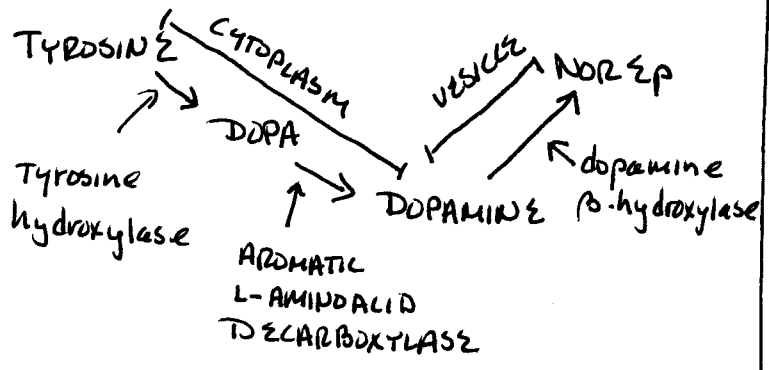 TYROSINE
CYTOPLASM
VESICLE
NOREP
DOPA
Tyrosine
hydroxylase
DOPAMINE
dopamine
β-hydroxylase
AROMATIC
L-AMINOACID
DECARBOXYLASE